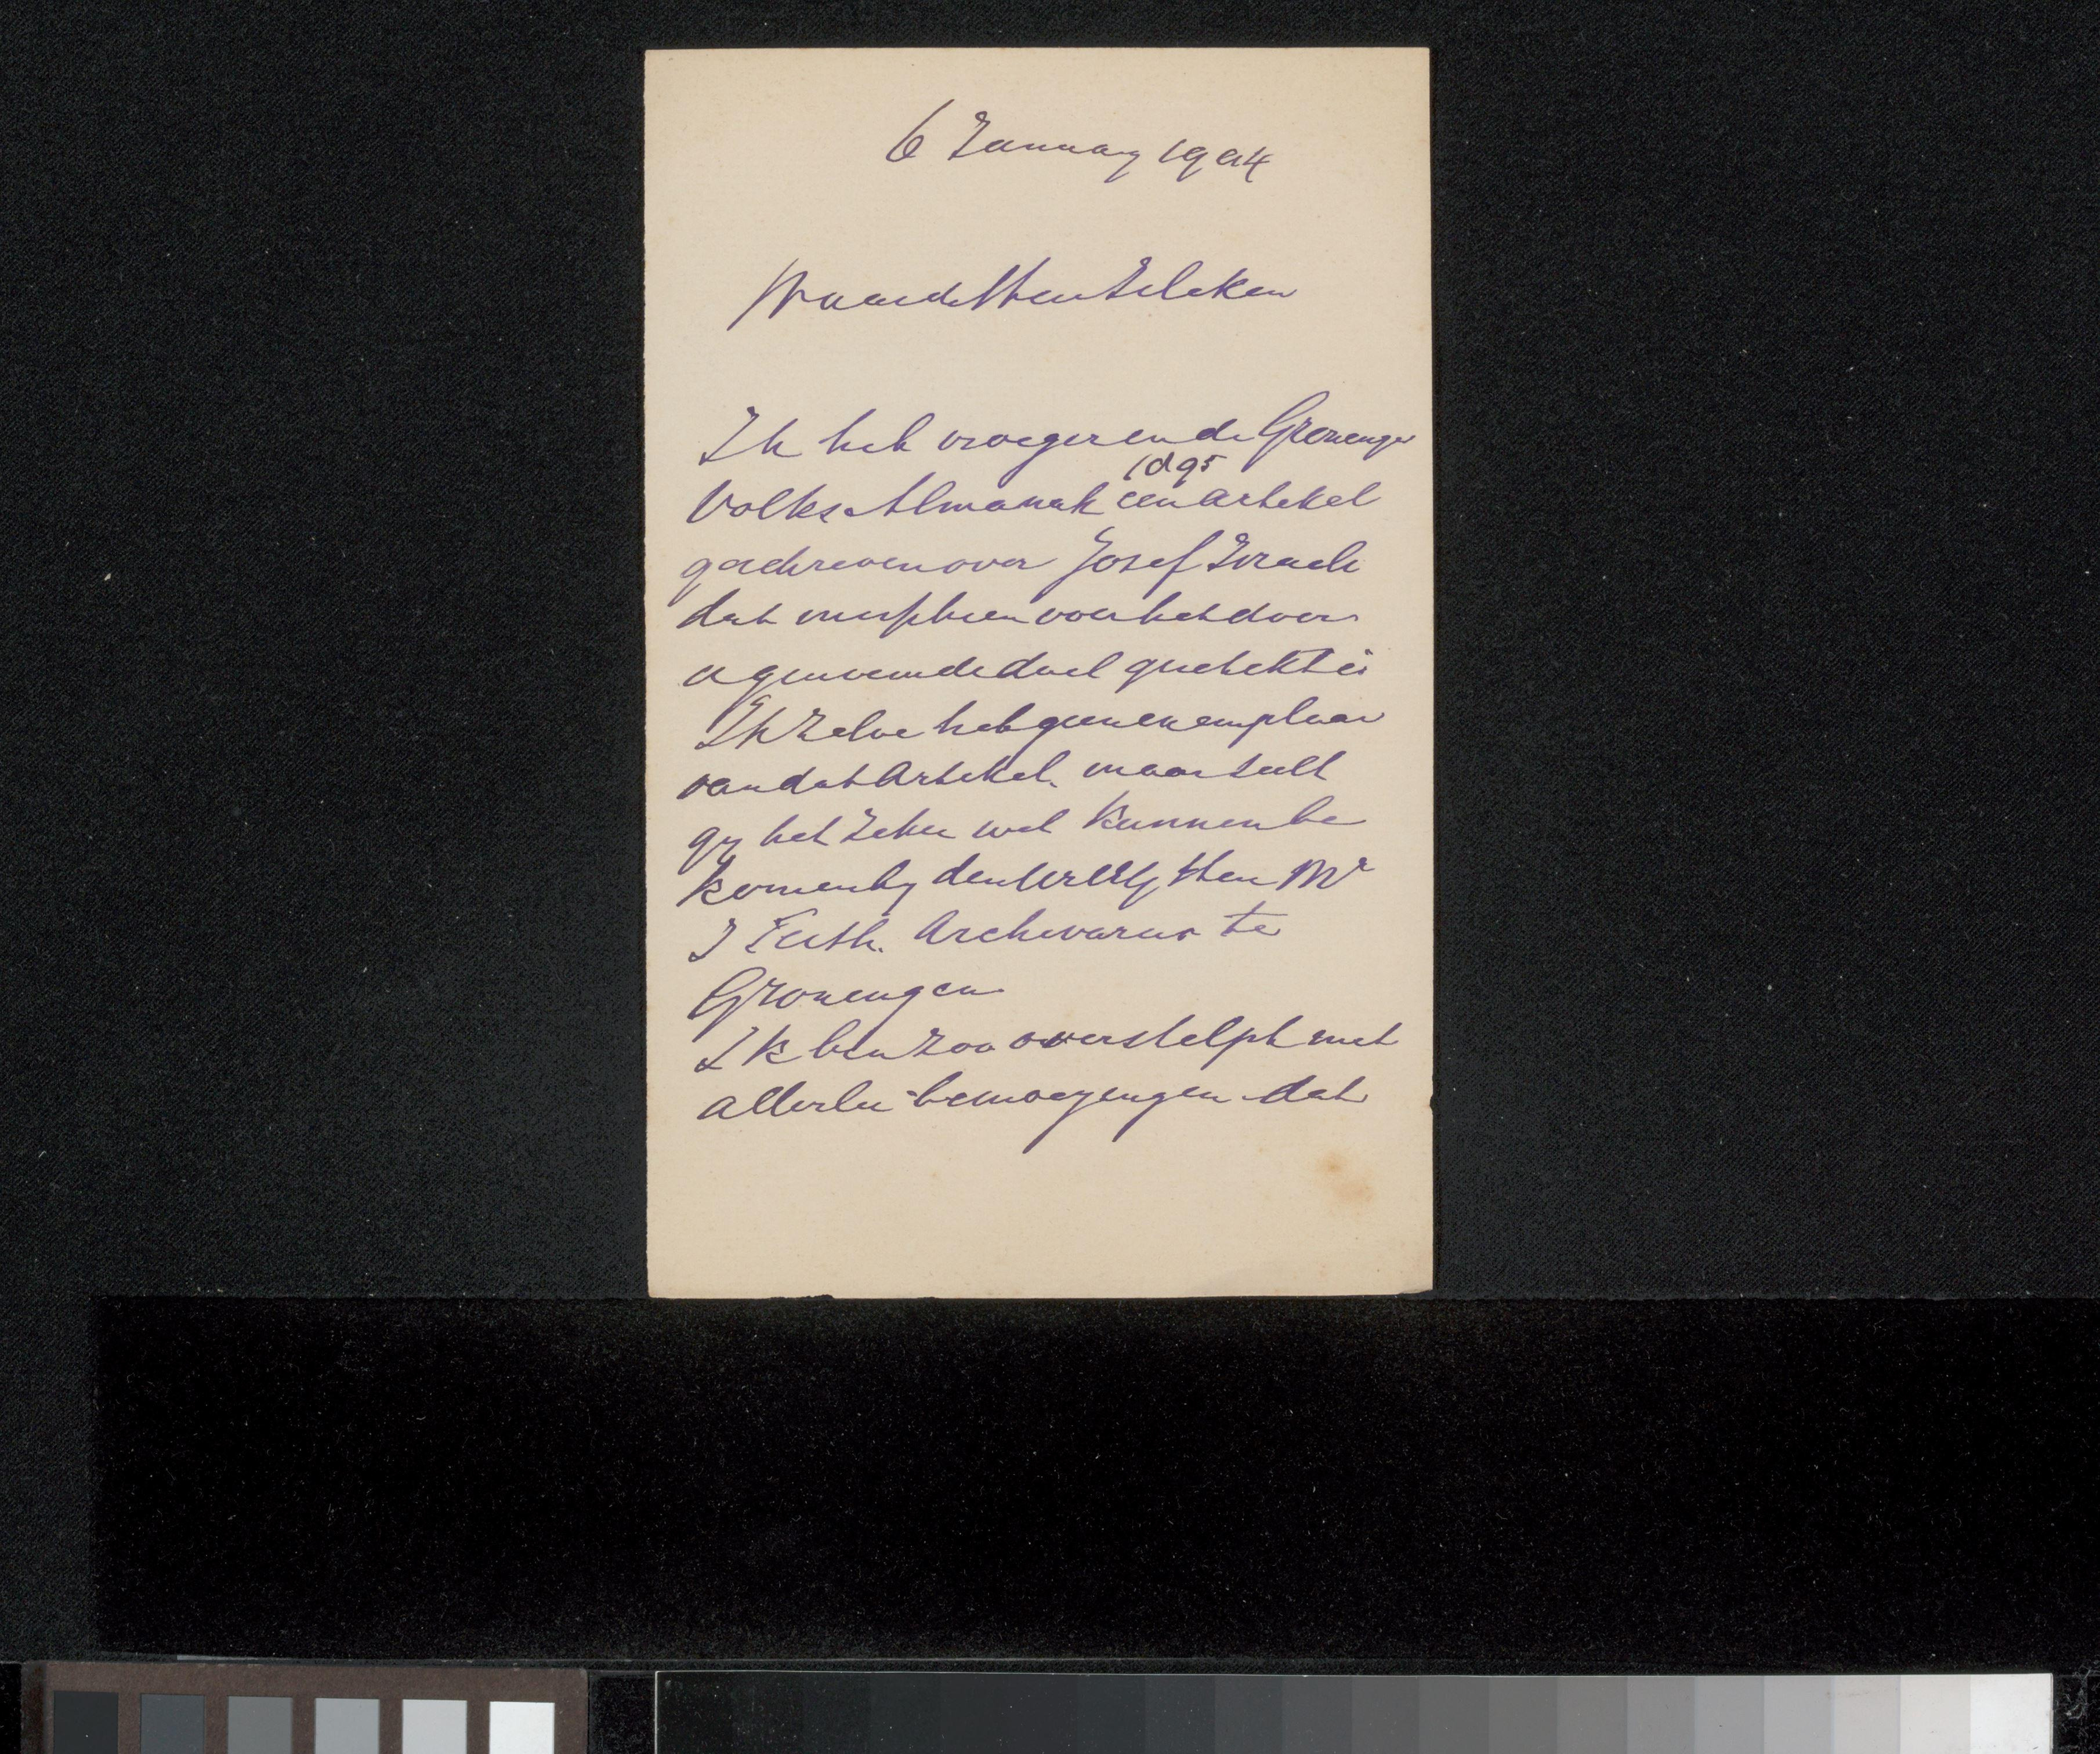 6 January 1904
Waarde Heer Zilcken
Ik heb vroeger in de Groninger
1895
Volks Almanak een artikel
geschreven over Jozef Israels
dat misschien voor het door
u genoemde doel geschikt is
Ik zelve heb geen exemplaar
van dat artikel. maar zult
gy het zeker wel kunnen be
komen by den WelEdG Heer Mr
J Feith. Archivaris te
Groningen
Ik ben zoo overstelpt met
allerlei bemoeyingen dat